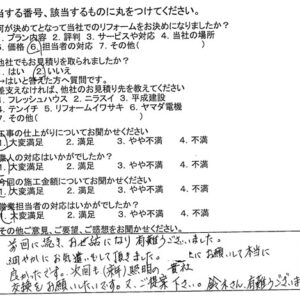 当する番号、該当するものに丸をつけてください。
何が決めてとなって当社でのリフォームをお決めになりましたか?
1. プラン内容 2. 評判 3. サービスや対応 4. 当社の場所
5. 価格 6. 担当者の対応 7. その他(
他社でもお見積りを取られましたか?
1. はい 2. いいえ
→はいと答えた方へ質問です。
差支えなければ、他社のお見積り先を教えてください
1. フレッシュハウス 2. ニラスイ 3. 平成建設
4. テンイチ 5. リフォームイワサキ 6. ヤマダ電機
7. その他(
工事の仕上がりについてお聞かせください
1. 大変満足 2. 満足 3. やや不満 4. 不満
職人の対応はいかがでしたか?
1. 大変満足 2. 満足 3. やや不満 4. 不満
今回の施工金額についてお聞かせください
1. 大変満足 2. 満足 3. やや不満 4. 不満
営業担当者の対応はいかがでしたか?
1. 大変満足 2. 満足 3. やや不満 4. 不満
その他ご意見、ご要望、ご感想をお聞かせください。
前回に続き、お世話になり有難うございました。
細やかにお気遣いをして頂きました。 にお願いして本当に
良かったです。次回も 照明の
交換をお願いしたいです。又、ご提案下さい。鈴木さん、有難うござい